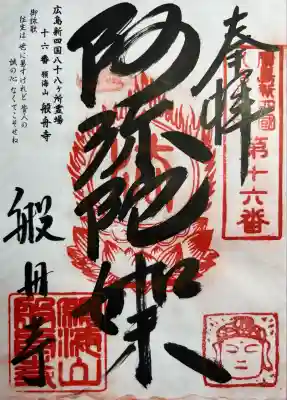 奉拝
第十六番
阿弥陀如来
広島新四国八十八ヶ所霊場
十六番 願海山 般舟寺
御詠歌
往生は 世に易すけれど 皆人の
誠の心 なくてこそせね
般舟寺